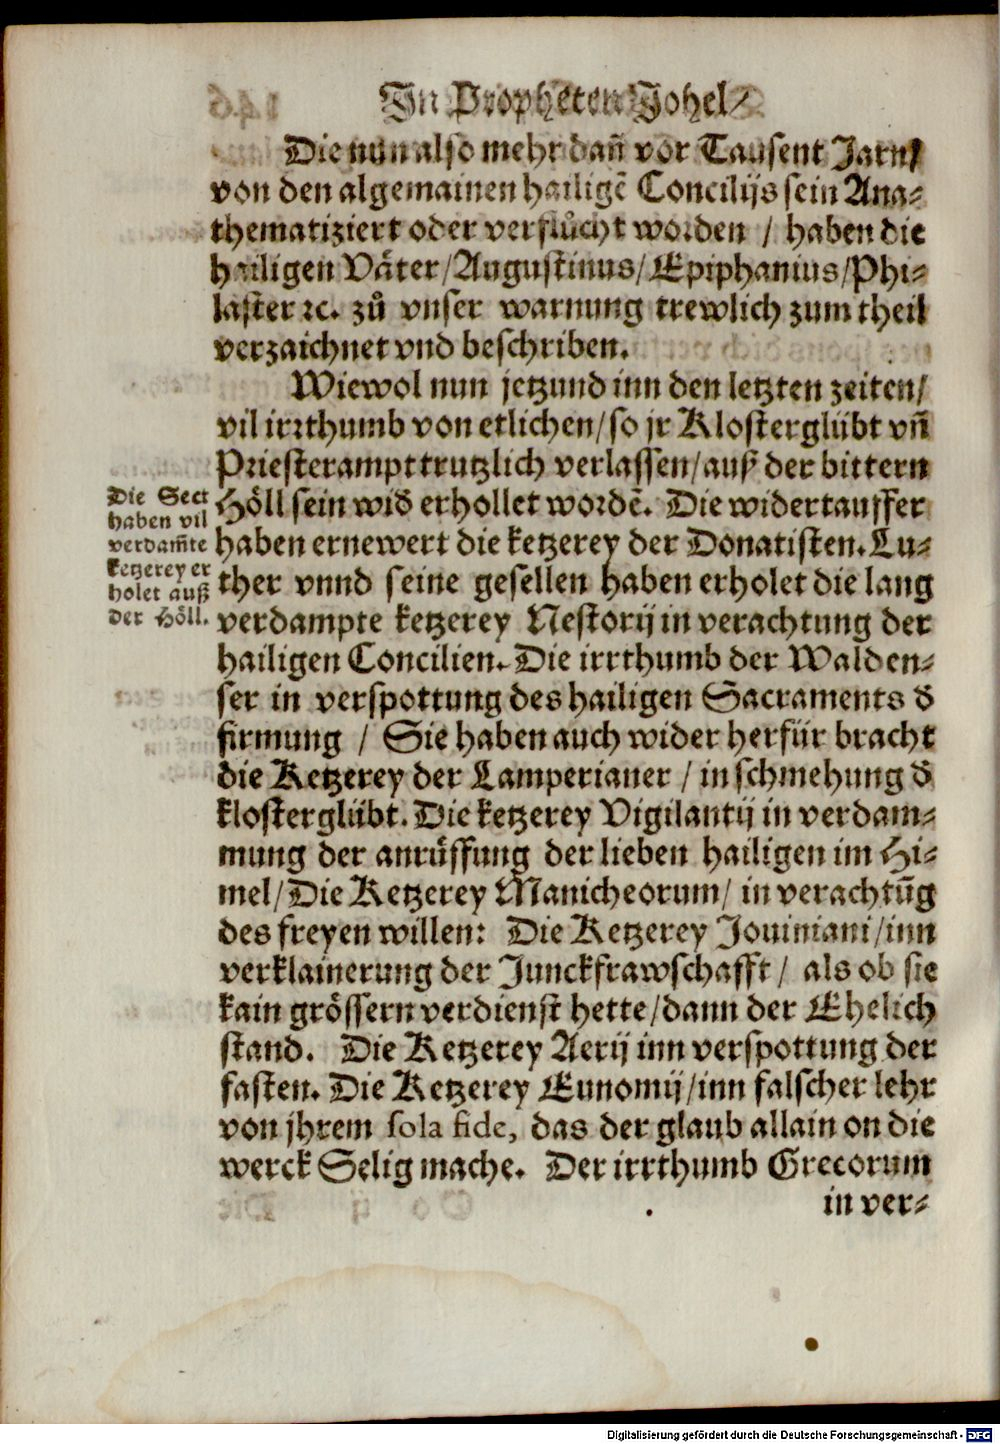 In Propheten Johel/
Die nun also mehr dañ vor Tausent Jarn/
von den algemainen hailigẽ Concilijs sein Ana-
thematiziert oder verflůcht worden / haben die
hailigen Väter/Augustinus/Epiphanius/Phi-
laster ꝛc. zů vnser warnung trewlich zum theil
verzaichnet vnd beschriben.
Wiewol nun jetzund inn den letzten zeiten/
vil irrthumb von etlichen/so jr Klosterglübt vñ
Priesterampt trutzlich verlassen/auß der bittern
Höll sein wid erhollet wordẽ. Die widertauffer
haben ernewert die ketzerey der Donatisten. Lu-
ther vnnd seine gesellen haben erholet die lang
verdampte ketzerey Nestorij in verachtung der
hailigen Concilien. Die irrthumb der Walden-
ser in verspottung des hailigen Sacraments d
firmung / Sie haben auch wider herfür bracht
die Ketzerey der Lamperianer / in schmehung d
klosterglübt. Die ketzerey Vigilantij in verdam-
mung der anrüffung der lieben hailigen im Hi-
mel/Die Ketzerey Manicheorum/ in verachtũg
des freyen willen: Die Ketzerey Jouiniani/inn
verklainerung der Junckfrawschafft / als ob sie
kain grössern verdienst hette/dann der Ehelich
stand. Die Ketzerey Aerij inn verspottung der
fasten. Die Ketzerey Eunomij/inn falscher lehr
von jhrem sola fide, das der glaub allain on die
werck Selig mache. Der irrthumb Grecorum
in ver-
Die Sect
haben vil
verdam̃te
ketzerey er
holet auß
der Höll.
Digitalisierung gefördert durch die Deutsche Forschungsgemeinschaft - DFG